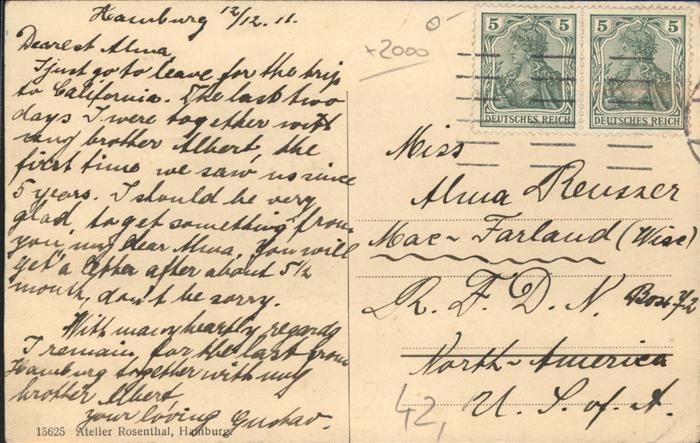 Hamburg 12/12. 11.
Dearest Alma,
I just go to leave for the trip
to California. The last two
days I were together with
my brother Albert, the
first time we saw us since
5 years. I should be very
glad to get something from
you, my dear Alma, You will
get a letter after about 5 1/2
month, don't be sorry.
With many heartly regards
I remain, for the last from
Hamburg together with my
brother Albert,
your loving Gustav.
15625 Atelier Rosenthal, Hamburg.
0-
+2000
5 5
DEUTSCHES REICH
5 5
DEUTSCHES REICH
Miss
Alma Reusser
Mac-Farland (Wisc)
R. F. D. N. Box 72
North-America
U. S. of A.
42,